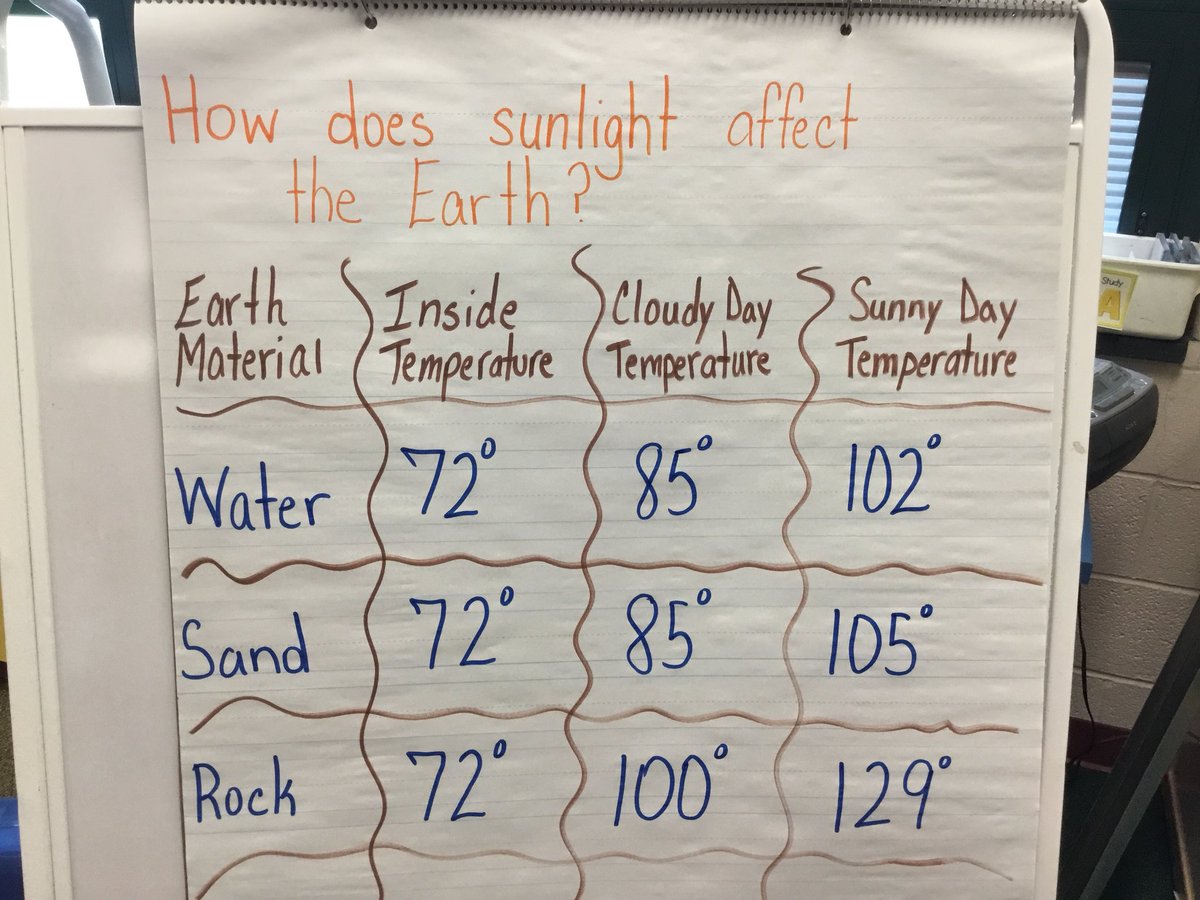 How does sunlight affect
the Earth?
Earth Material
Inside Temperature
Cloudy Day Temperature
Sunny Day Temperature
Water 72° 85° 102°
Sand 72° 85° 105°
Rock 72° 100° 129°
Study
A